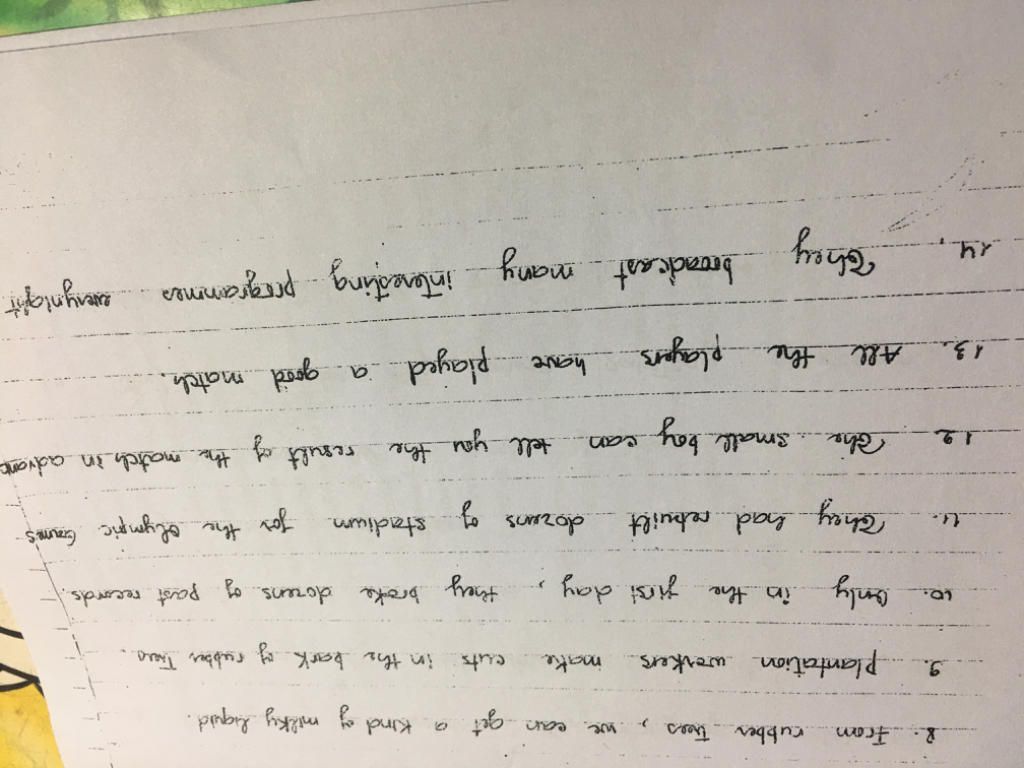 8. From rubber Trees, we can get a kind of milky liquid.
9. plantation workers make cuts in the bark of rubber Trees.
10. Only in the first day, they broke dozens of past records.
11. They had rebuilt dozens of stadium for the Olympic Games
12. The small boy can tell you the result of the match in advance
13. All the players have played a good match.
14. They broadcast many interesting programmes everynight